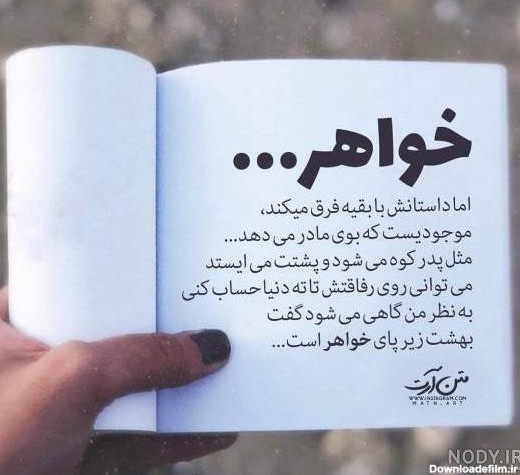 خواهر...
اما داستانش با بقیه فرق میکند،
موجودیست که بوی مادر می دهد...
مثل پدر کوه می شود و پشتت می ایستد
می توانی روی رفاقتش تا ته دنیا حساب کنی
به نظر من گاهی می شود گفت
بهشت زیر پای خواهر است...
متن آرت
WWW.INSTAGRAM.COM
MATN.ART
NODY.IR
Downloadfilm.ir